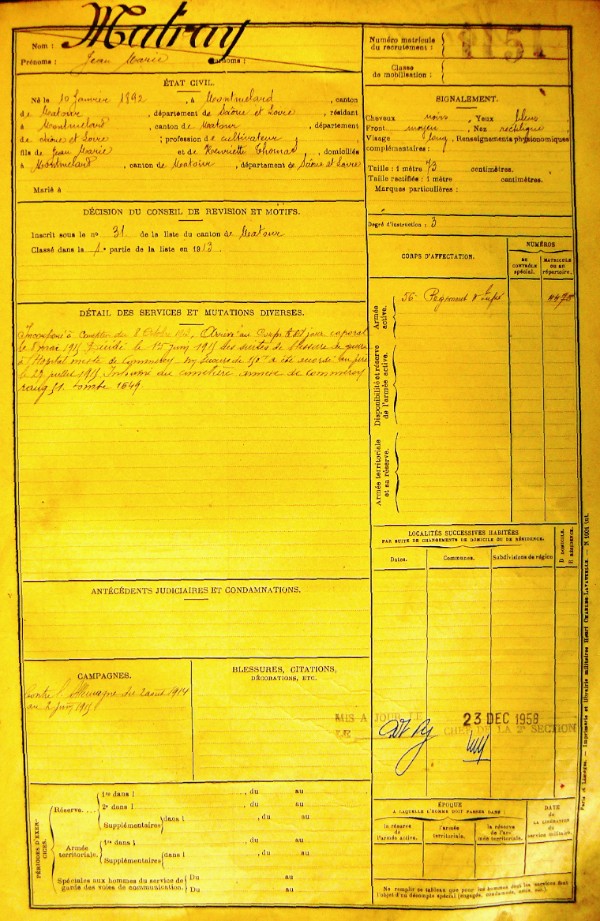 Nom : Matray
Prénoms : Jean Marie Surnoms :
ÉTAT CIVIL.
Né le 10 Janvier 1892, à Montmelard, canton
de Matour, département de Saône et Loire, résidant
à Montmelard, canton de Matour, département
de Saône et Loire, profession de cultivateur
fils de Jean Marie et de Henriette Thomas, domiciliés
à Montmelard, canton de Matour, département de Saône et Loire
Marié à
DÉCISION DU CONSEIL DE REVISION ET MOTIFS.
Inscrit sous le no 31 de la liste du canton de Matour
Classé dans la 1e partie de la liste en 1913
DÉTAIL DES SERVICES ET MUTATIONS DIVERSES.
Incorporé à compter du 8 Octobre 1913, Arrivé au Corps et dit jour caporal
le 8 mai 1915 le 15 juin 1915 des suites de blessures de guerre
à l'Hopital mixte de Commercy Un secours de 150 a été accordé au père
le 29 juillet 1915 Inhumé au cimetière annexe de Commercy
rang 51. tombe 1849
ANTÉCÉDENTS JUDICIAIRES ET CONDAMNATIONS.
CAMPAGNES.
Contre l'Allemagne du 2 août 1914
au juin 1915
BLESSURES, CITATIONS,
DÉCORATIONS, ETC.
PÉRIODES D'EXERCICES.
Réserve....
1re dans l , du au
2e dans l , du au
Supplémentaires dans l , du au
Armée territoriale.
1re dans l , du au
Supplémentaires dans l , du au
Spéciales aux hommes du service de garde des voies de communication.
Du au
Du au
Numéro matricule
du recrutement :
Classe
de mobilisation :
SIGNALEMENT.
Cheveux noirs, Yeux bleus
Front moyen, Nez rectiligne
Visage long, Renseignements physionomiques
complémentaires :
Taille : 1 mètre 73 centimètres.
Taille rectifiée : 1 mètre centimètres.
Marques particulières :
Degré d'instruction : 3
CORPS D'AFFECTATION.
NUMÉROS
AU CONTRÔLE spécial.
MATRICULE OU AU répertoire.
Armée active.
56e Régiment d'Infie
Disponibilité et réserve de l'armée active.
Armée territoriale et sa réserve.
LOCALITÉS SUCCESSIVES HABITÉES
PAR SUITE DE CHANGEMENTS DE DOMICILE OU DE RÉSIDENCE.
Dates.
Communes.
Subdivisions de région
D DOMICILE.
R RÉSIDENCE.
MIS A JOUR
LE
23 DEC 1958
CHEF DE LA 2e SECTION
ÉPOQUE
A LAQUELLE L'HOMME DOIT PASSER DANS :
la réserve de l'armée active.
l'armée territoriale.
la réserve de l'armée territoriale.
DATE
de
LA LIBÉRATION
du
service militaire.
Ne remplir ce tableau que pour les hommes dont les services font
l'objet d'un décompte spécial (engagés, condamnés, omis, etc.)
Paris et Limoges. — Imprimerie et librairie militaires Henri CHARLES-LAVAUZELLE.